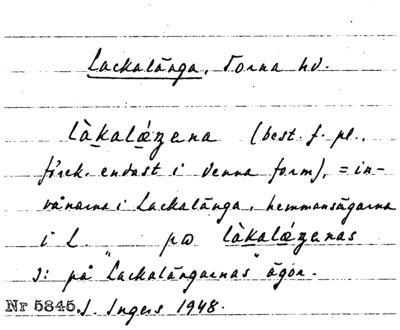 Lackalänga, Torna hd.
làkalǽŋana (best. f. pl.,
förek. endast i denna form), = in-
vånarna i Lackalänga, hemmansägarna
i L. pɒ làkalǽŋanas
ɔ: på "Lackalängarnas" ägor.
Nr 5845. I. Ingers 1948.